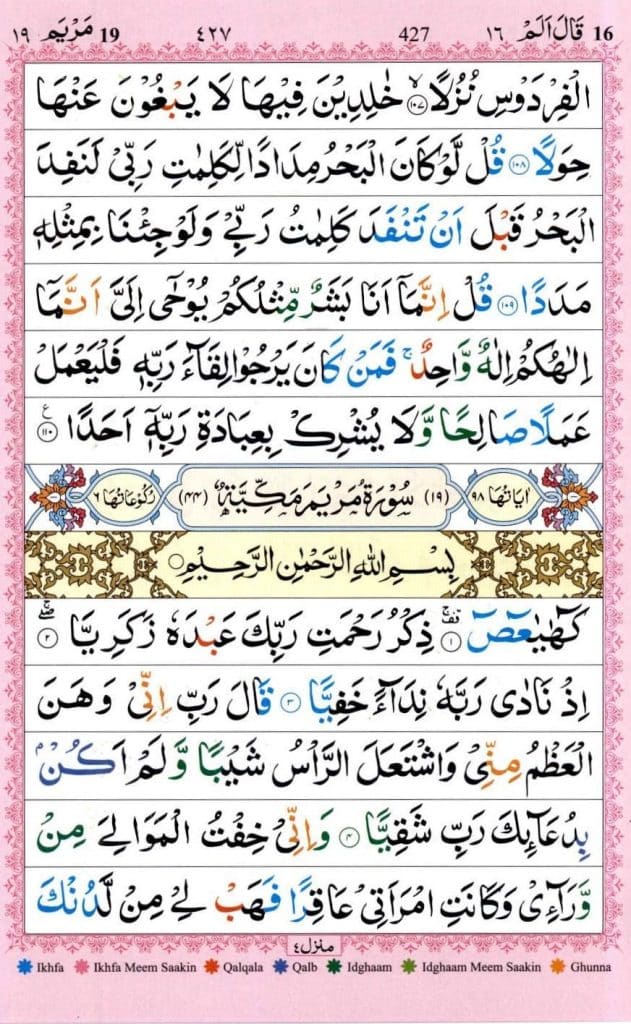 16 قَالَ اَلَمۡ ١٦ 427 ٤٢٧ 19 مَرۡيَم ١٩
الۡفِرۡدَوۡسِ نُزُلًا ۙ‏﴿۱۰۷﴾ خٰلِدِيۡنَ فِيۡهَا لَا يَـبۡغُوۡنَ عَنۡهَا
حِوَلًا‏﴿۱۰۸﴾ قُلْ لَّوۡ كَانَ الۡبَحۡرُ مِدَادًا لِّـكَلِمٰتِ رَبِّىۡ لَـنَفِدَ
الۡبَحۡرُ قَبۡلَ اَنۡ تَـنۡفَدَ كَلِمٰتُ رَبِّىۡ وَلَوۡ جِئۡنَا بِمِثۡلِهٖ
مَدَدًا‏﴿۱۰۹﴾ قُلۡ اِنَّمَاۤ اَنَا بَشَرٌ مِّثۡلُكُمۡ يُوۡحٰٓى اِلَىَّ اَنَّمَاۤ
اِلٰهُكُمۡ اِلٰـهٌ وَّاحِدٌ‌  ۚ فَمَنۡ كَانَ يَرۡجُوۡالِقَآءَ رَبِّهٖ فَلۡيَـعۡمَلۡ
عَمَلًا صَالِحًـاوَّلَا يُشۡرِكۡ بِعِبَادَةِ رَبِّهٖۤ اَحَدًا‏﴿۱۱۰﴾ ع
اٰيَاتُهَا ٩٨ (١٩) سُوۡرَةُ مَرۡيَمَ مَكِّيَّةٌ (٤٤) رُكُوۡعَاتُهَا ٦
بِسۡمِ اللهِ الرَّحۡمٰنِ الرَّحِيۡمِ
كٓهٰيٰـعٓـصٓ ۚ‏﴿۱﴾ ذِكۡرُ رَحۡمَتِ رَبِّكَ عَـبۡدَهٗ زَكَرِيَّا ۖ ۚ‏﴿۲﴾
اِذۡ نَادٰى رَبَّهٗ نِدَآءً خَفِيًّا‏﴿۳﴾ قَالَ رَبِّ اِنِّىۡ وَهَنَ
الۡعَظۡمُ مِنِّىۡ وَاشۡتَعَلَ الرَّاۡسُ شَيۡبًا وَّلَمۡ اَكُنۡۢ
بِدُعَآٮِٕكَ رَبِّ شَقِيًّا‏﴿۴﴾ وَاِنِّىۡ خِفۡتُ الۡمَوَالِىَ مِنۡ
وَّرَآءِىۡ وَكَانَتِ امۡرَاَتِىۡ عَاقِرًا فَهَبۡ لِىۡ مِنۡ لَّدُنۡكَ
منزل ٤
Ikhfa Ikhfa Meem Saakin Qalqala Qalb Idghaam Idghaam Meem Saakin Ghunna